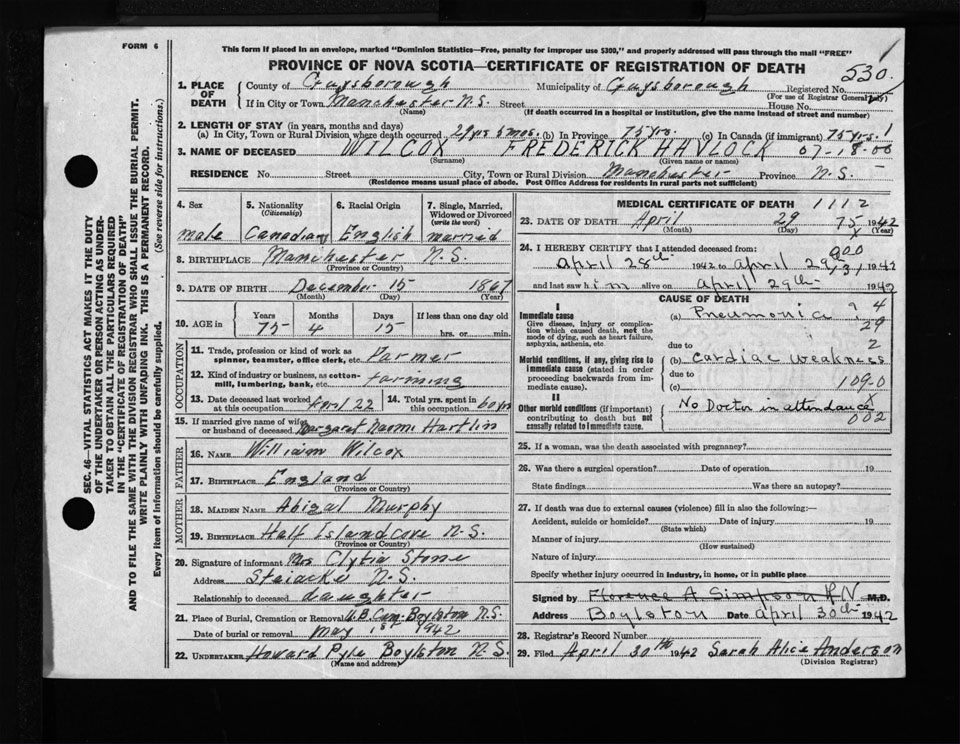 FORM 6
This form if placed in an envelope, marked "Dominion Statistics—Free, penalty for improper use $300," and properly addressed will pass through the mail "FREE"
PROVINCE OF NOVA SCOTIA—CERTIFICATE OF REGISTRATION OF DEATH
530
1. PLACE OF DEATH
County of Guysborough Municipality of Guysborough Registered No.
(For use of Registrar General only)
If in City or Town Manchester N.S. Street House No.
(Name) (If death occurred in a hospital or institution, give the name instead of street and number)
2. LENGTH OF STAY (in years, months and days)
(a) In City, Town or Rural Division where death occurred 29 yrs 5 mos. (b) In Province 75 yrs. (c) In Canada (if immigrant) 75 yrs. 1
3. NAME OF DECEASED WILCOX FREDERICK HAVLOCK 07-18-00
(Surname) (Given name or names)
RESIDENCE No. Street City, Town or Rural Division Manchester Province N.S.
(Residence means usual place of abode. Post Office Address for residents in rural parts not sufficient)
4. Sex
male
5. Nationality
(Citizenship)
Canadian
6. Racial Origin
English
7. Single, Married, Widowed or Divorced
(write the word)
married
8. BIRTHPLACE Manchester N.S.
(Province or Country)
9. DATE OF BIRTH December 15 1867
(Month) (Day) (Year)
10. AGE in
Years Months Days If less than one day old
75 4 15 hrs. or min.
OCCUPATION
11. Trade, profession or kind of work as
spinner, teamster, office clerk, etc. Farmer
12. Kind of industry or business, as cotton-
mill, lumbering, bank, etc. farming
13. Date deceased last worked at this occupation April 22
14. Total yrs. spent in this occupation 60 yrs
15. If married give name of wife or husband of deceased Margaret Naomi Hartlin
FATHER
16. NAME William Wilcox
17. BIRTHPLACE England
(Province or Country)
MOTHER
18. MAIDEN NAME Abigal Murphy
19. BIRTHPLACE Half Island Cove N.S.
(Province or Country)
20. Signature of informant Mrs Clytia Stone
Address N.S.
Relationship to deceased daughter
21. Place of Burial, Cremation or Removal Cem. Boylston N.S.
Date of burial or removal May 1st 1942
22. UNDERTAKER Howard Pyle Boylston N.S.
(Name and address)
MEDICAL CERTIFICATE OF DEATH 1112
23. DATE OF DEATH April 29 75 1942
(Month) (Day) (Year)
24. I HEREBY CERTIFY that I attended deceased from:
April 28th 1942 to April 29 1942
and last saw him alive on April 29th 1942
CAUSE OF DEATH
I
Immediate cause
Give disease, injury or complication which caused death, not the mode of dying, such as heart failure, asphyxia, asthenia, etc.
(a) Pneumonia ? 4
29
due to 2
Morbid conditions, if any, giving rise to immediate cause (stated in order proceeding backwards from immediate cause).
(b) Cardiac weakness
due to
(c) 109.0
II
Other morbid conditions (if important) contributing to death but not causally related to immediate cause.
No Doctor in attendance
002
25. If a woman, was the death associated with pregnancy?
26. Was there a surgical operation? Date of operation 19
State findings Was there an autopsy?
27. If death was due to external causes (violence) fill in also the following:—
Accident, suicide or homicide? Date of injury 19
(State which)
Manner of injury
(How sustained)
Nature of injury
Specify whether injury occurred in industry, in home, or in public place
Signed by Florence A. Simpson R.N. M.D.
Address Boylston Date April 30th 1942
28. Registrar's Record Number
29. Filed April 30th 1942 Sarah Alice Anderson
(Division Registrar)
SEC. 46—VITAL STATISTICS ACT MAKES IT THE DUTY
OF THE UNDERTAKER OR PERSON ACTING AS UNDER-
TAKER TO OBTAIN ALL THE PARTICULARS REQUIRED
IN THE "CERTIFICATE OF REGISTRATION OF DEATH"
AND TO FILE THE SAME WITH THE DIVISION REGISTRAR WHO SHALL ISSUE THE BURIAL PERMIT.
WRITE PLAINLY WITH UNFADING INK. THIS IS A PERMANENT RECORD.
Every item of information should be carefully supplied. (See reverse side for instructions.)